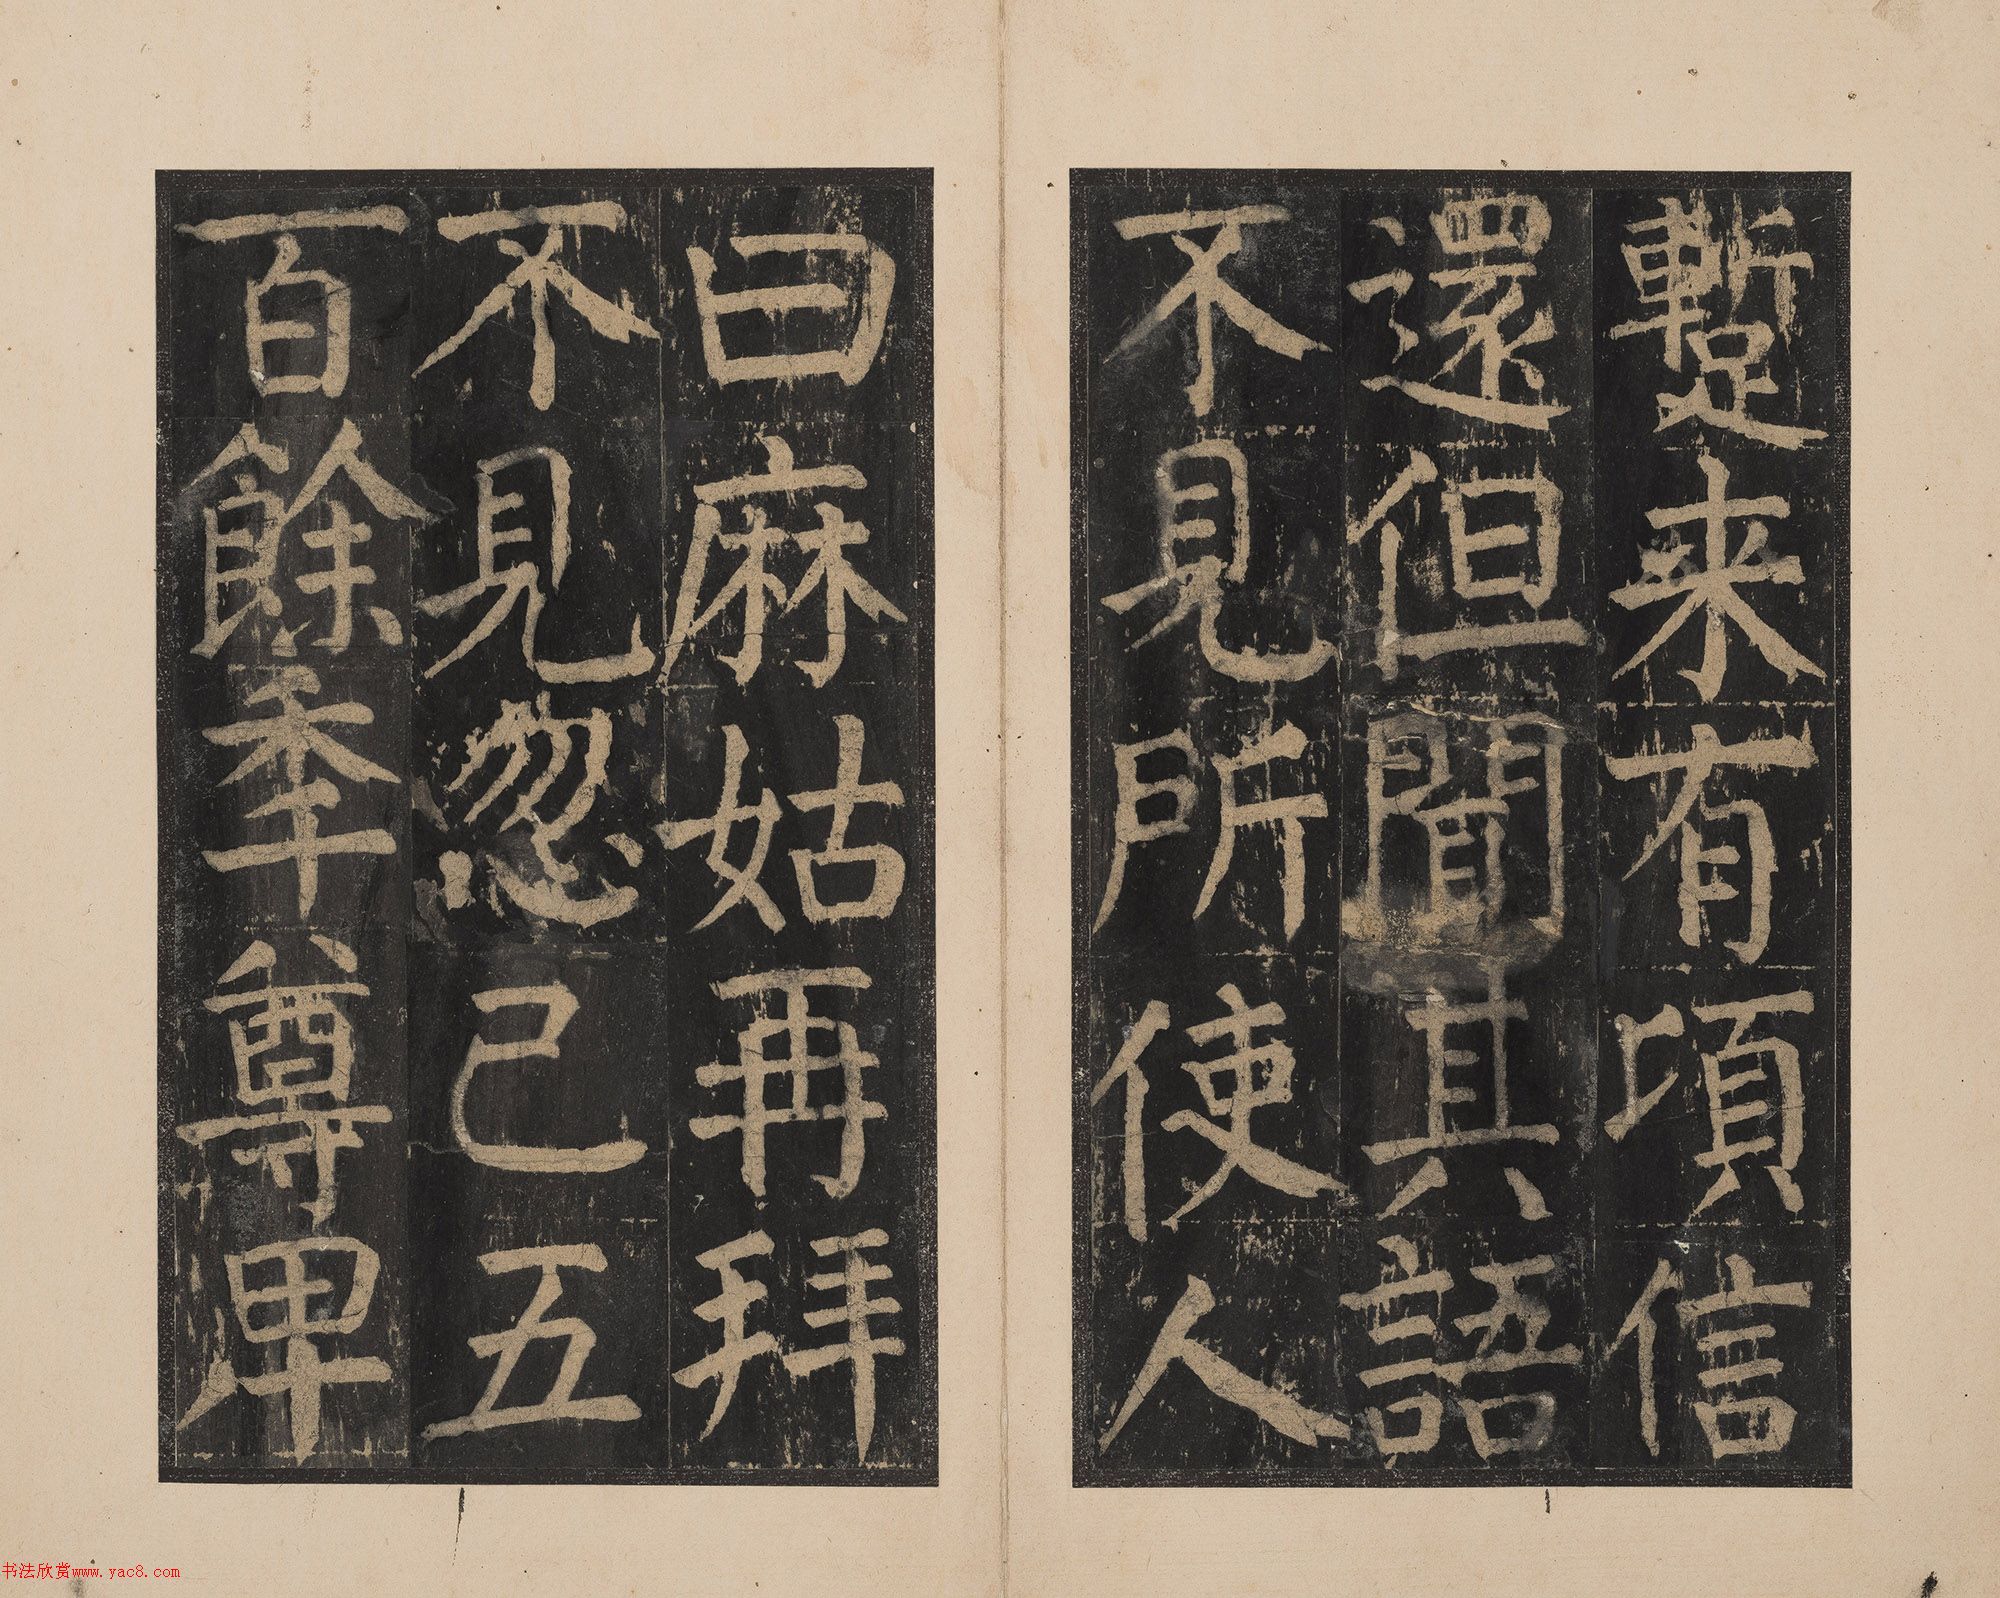 蹔来有頃信
還但聞其語
不見所使人
曰麻姑再拜
不見忽已五
百餘秊尊卑
书法欣赏www.yac8.com